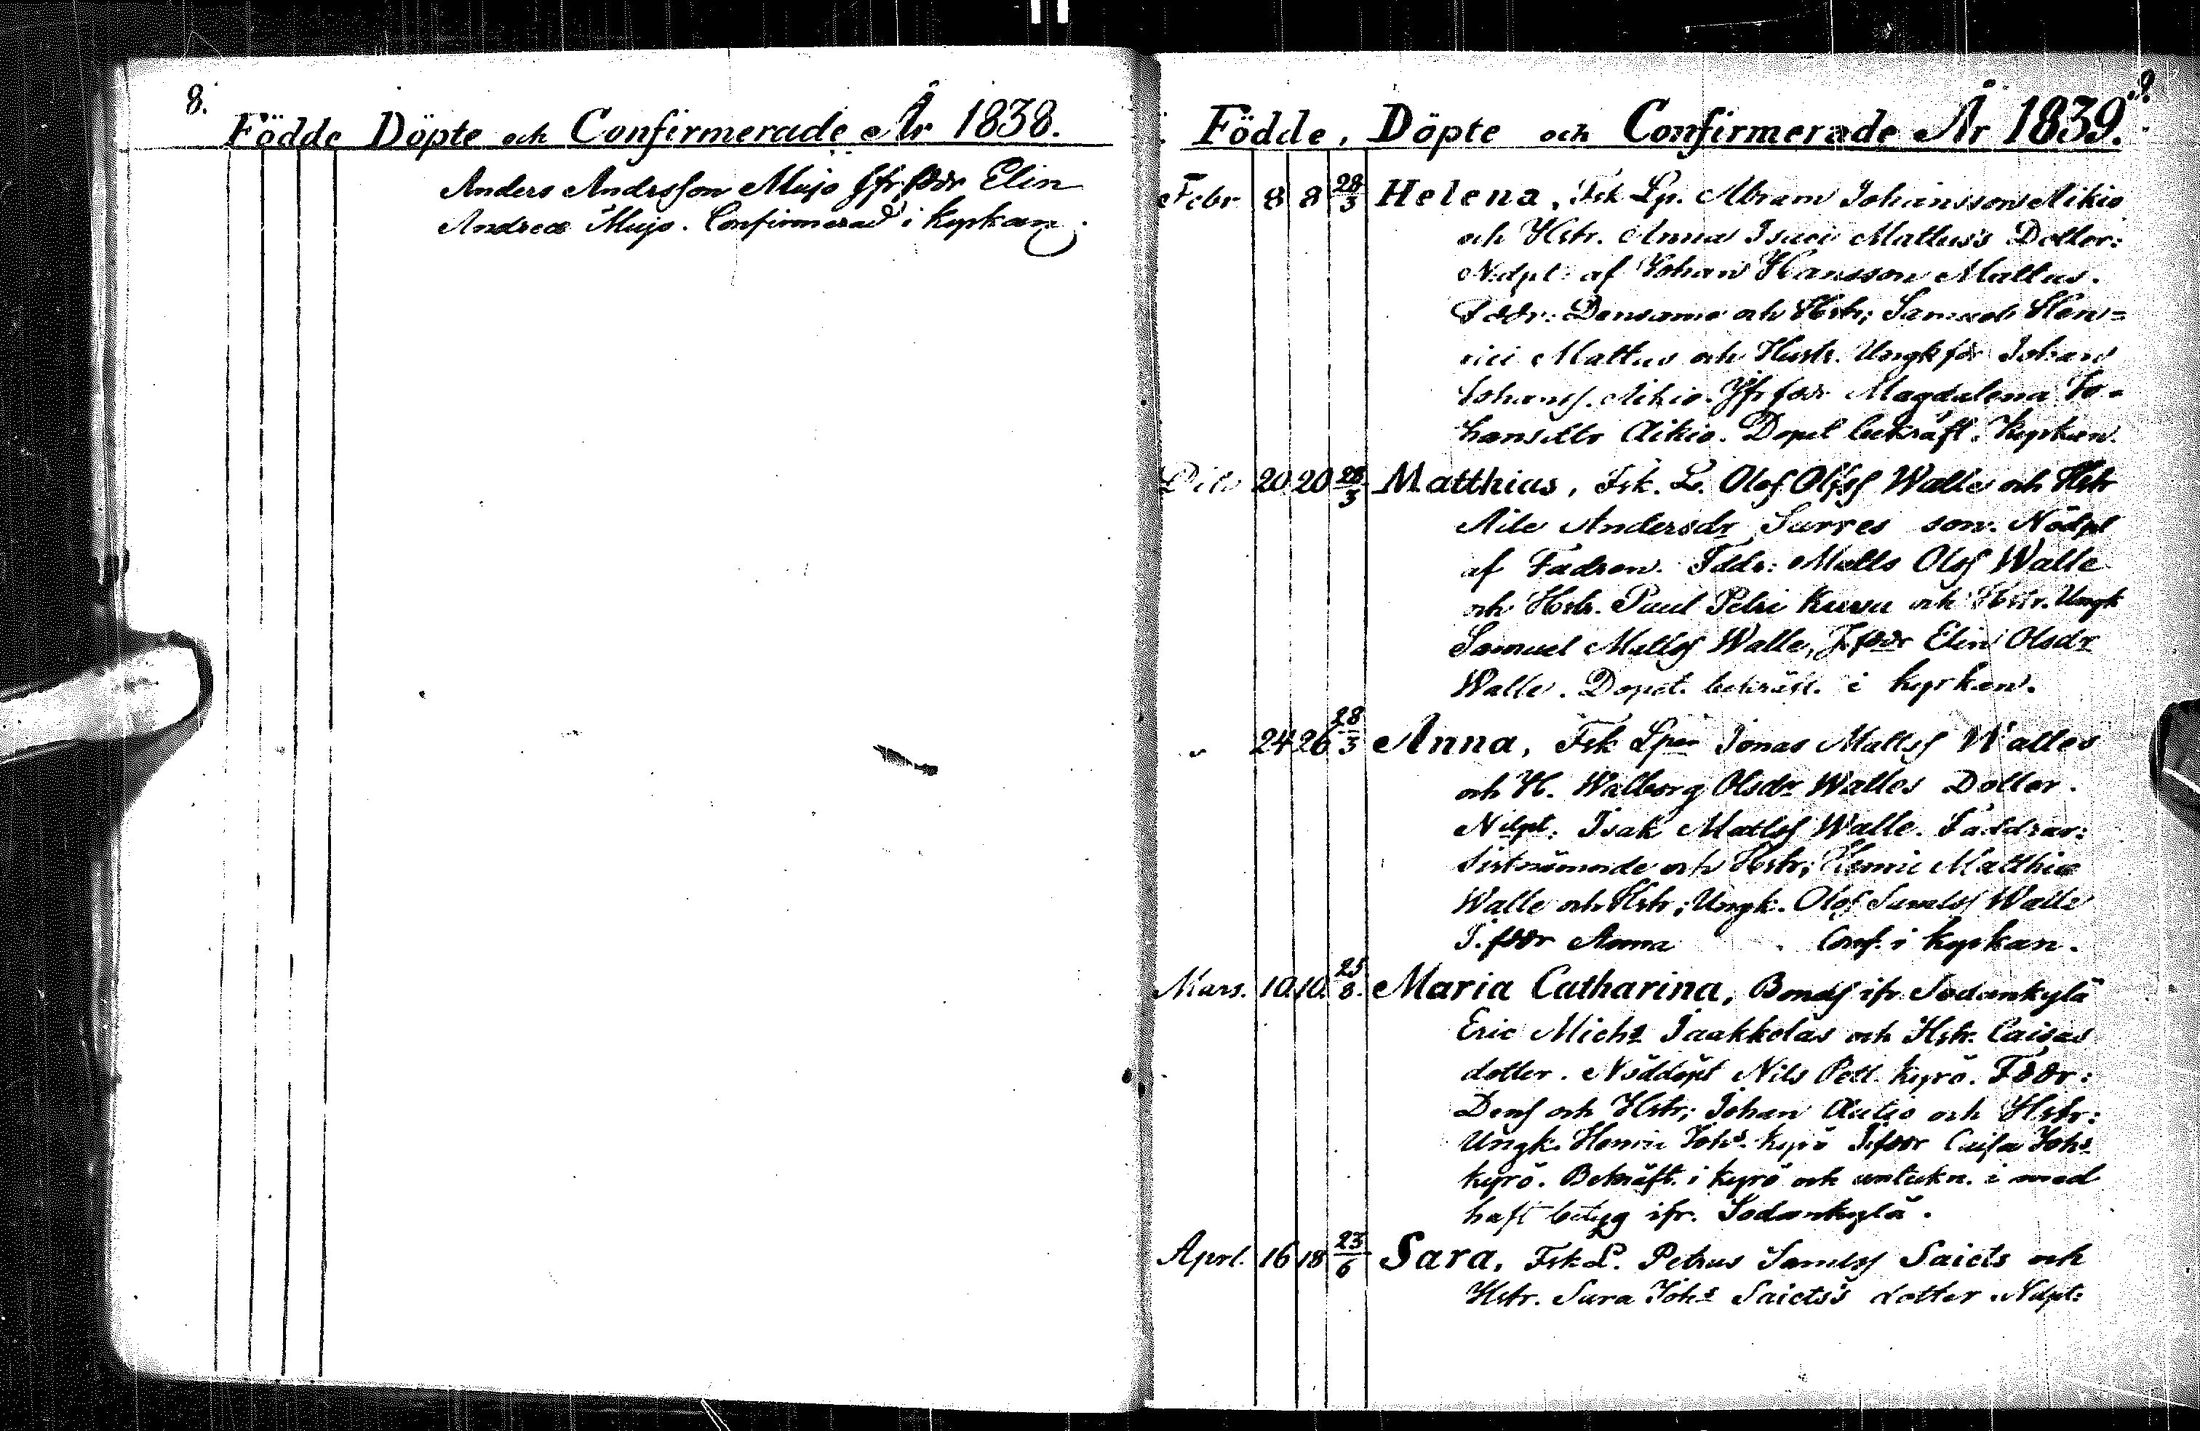 8.
Födde Döpte och Confirmerade År 1838.
Anders Andersson Mujo Jfr fddr Elin
Andreæ Mujo. Confirmerad i kyrkan.
9.
Födde, Döpte och Confirmerade År 1839.
Febr 8 8 28/3 Helena, Fsk Lp. Abram Johansson Aikio
och Hstr. Anna Isaci Mattus's Dotter:
Ndpt af Johan Hansson Mattus.
Fddr: Densamme och Hstr; Samuel Hen=
rici Mattus och Hustr. Ungk fdr Johan
Johanss. Aikio. Jfr fddr Magdalena Jo=
hansdtr Aikio. Dopet bekräft. Kyrkan.
Dito 20 20 28/3 Matthias, Fsk. L. Olof Olss Walle och Hstr
Aile Andersdr Sarres son. Nödpt
af Fadren. Fddr: Matts Olss Walle
och Hstr. Paul Petri Kuwa och Hstr. Ungk
Samuel Matss Walle, J. fddr Elin Olsdr
Walle. Dopet. bekräft. i kyrkan.
" 24 26 28/3 Anna, Fsk Lpen Jonas Matss Walles
och H. Walborg Olsdr Walles Dotter.
Ndpt: Isak Matss Walle. Faddrar:
Sistnämnde och Hstr; Henric Matthiæ
Walle och Hstr; Ungk. Olof Samlss Walle
J. fddr Anna Conf. i kyrkan.
Mars. 10 10. 25/8. Maria Catharina, Bonds ifr Sodankylä
Eric Michs Jaakkolas och Hstr. Caisas
dotter. Nöddöpt Nils Pett. Kyrö. Fddr:
Dens och Hstr; Johan Autio och Hstr:
Ungk. Henric Johs. Kyrö J. fddr Caisa Johs
Kyrö. Bekräft. i Kyrö och antekn. i med
haft betyg ifr. Sodankylä.
Aprl. 16 18 23/6 Sara, Fsk L. Petrus Samlss Saiets och
Hstr. Sara Johs Saiets's dotter Ndpt: